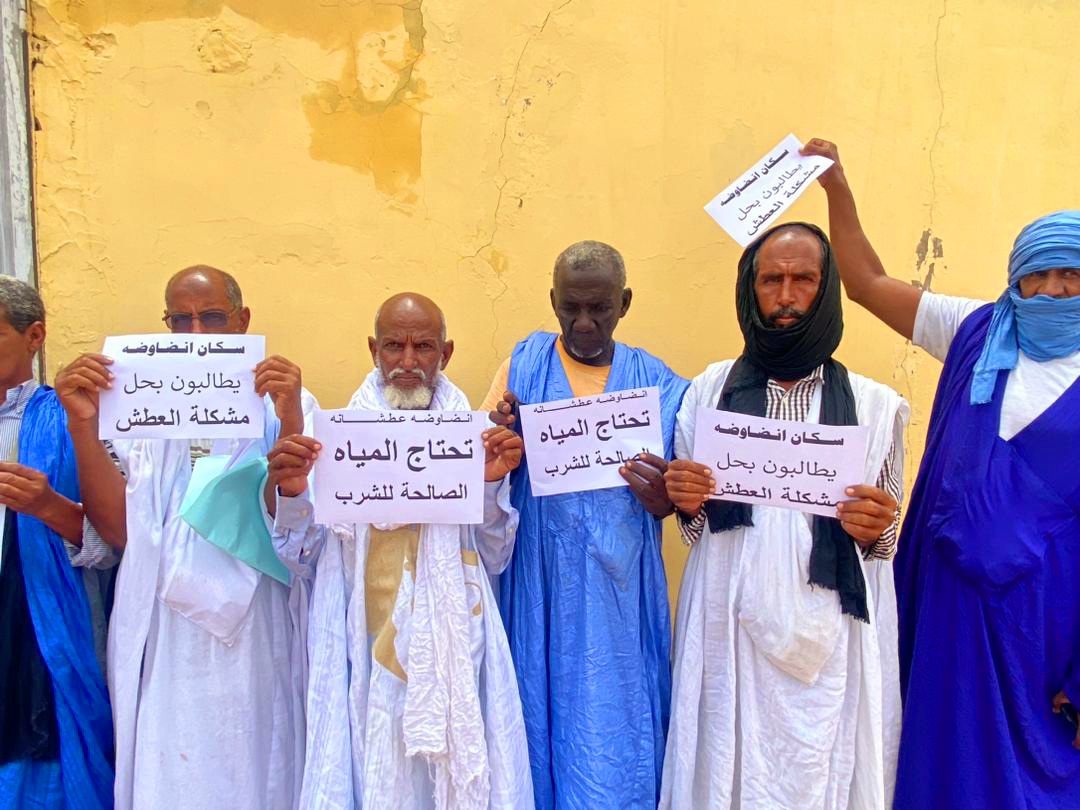 سكان انضاوضه
يطالبون بحل
مشكلة العطش
سكان انضاوضه
يطالبون بحل
مشكلة العطش
انضاوضه عطشانه
تحتاج المياه
الصالحة للشرب
انضاوضه عطشانه
تحتاج المياه
الصالحة للشرب
سكان انضاوضه
يطالبون بحل
مشكلة العطش